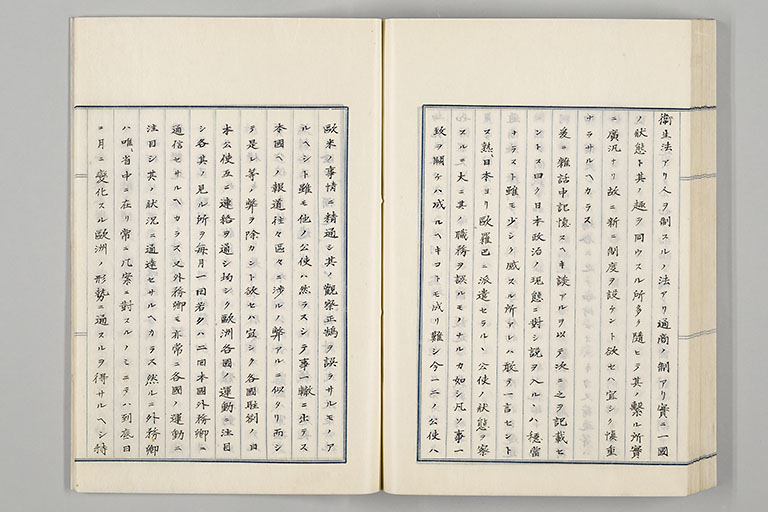 衛生法アリ人ヲ制スルノ法アリ通商ノ制アリ實ニ一國
ノ狀態ト其ノ趣ヲ同ウスル所多ク隨ヒテ其ノ繫ル所實
ニ廣汎ナリ故ニ新ニ制度ヲ設ケント欲セハ宜シク愼重
ナラサルヘカラス
爰ニ雜話中記憶スヘキ談アルヲ以テ次ニ之ヲ記載セ
ントス曰ク日本政治ノ現態ニ對シ説ヲ入ルヽハ穩當
ナラスト雖モ少シク感スル所アレハ敢テ一言セント
ス熟日本ヨリ歐羅巴ニ派遣セラルヽ公使ノ狀態ヲ察
スルニ大ニ其ノ職務ヲ誤ルモノナルカ如シ凡ソ事一
致ヲ闕ケハ成ルヘキコトモ成リ難シ今一二ノ公使ハ
歐米ノ事情ニ精通シ其ノ觀察正鵠ヲ誤ラサルモノア
ルヘシト雖モ他ノ公使ハ然ラスシテ事一轍ニ出テス
本國ヘノ報道往々區々ニ涉ルノ弊アルニ似タリ而シ
テ是レ等ノ弊ヲ除カント欲セハ宜シク各國駐劄ノ日
本公使互ニ連絡ヲ通シ均シク歐洲各國ノ運動ニ注目
シ各其ノ見ル所ヲ每月一回若クハ二回本國外務卿ニ
通信セサルヘカラス又外務卿モ亦常ニ各國ノ運動ニ
注目シ其ノ狀況ニ通達セサルヘカラス然ルニ外務卿
ハ唯省中ニ在リ常ニ几案ニ對スルノミニテハ到底日
ニ月ニ變化スル歐洲ノ形勢ニ通スルヲ得サルヘシ特